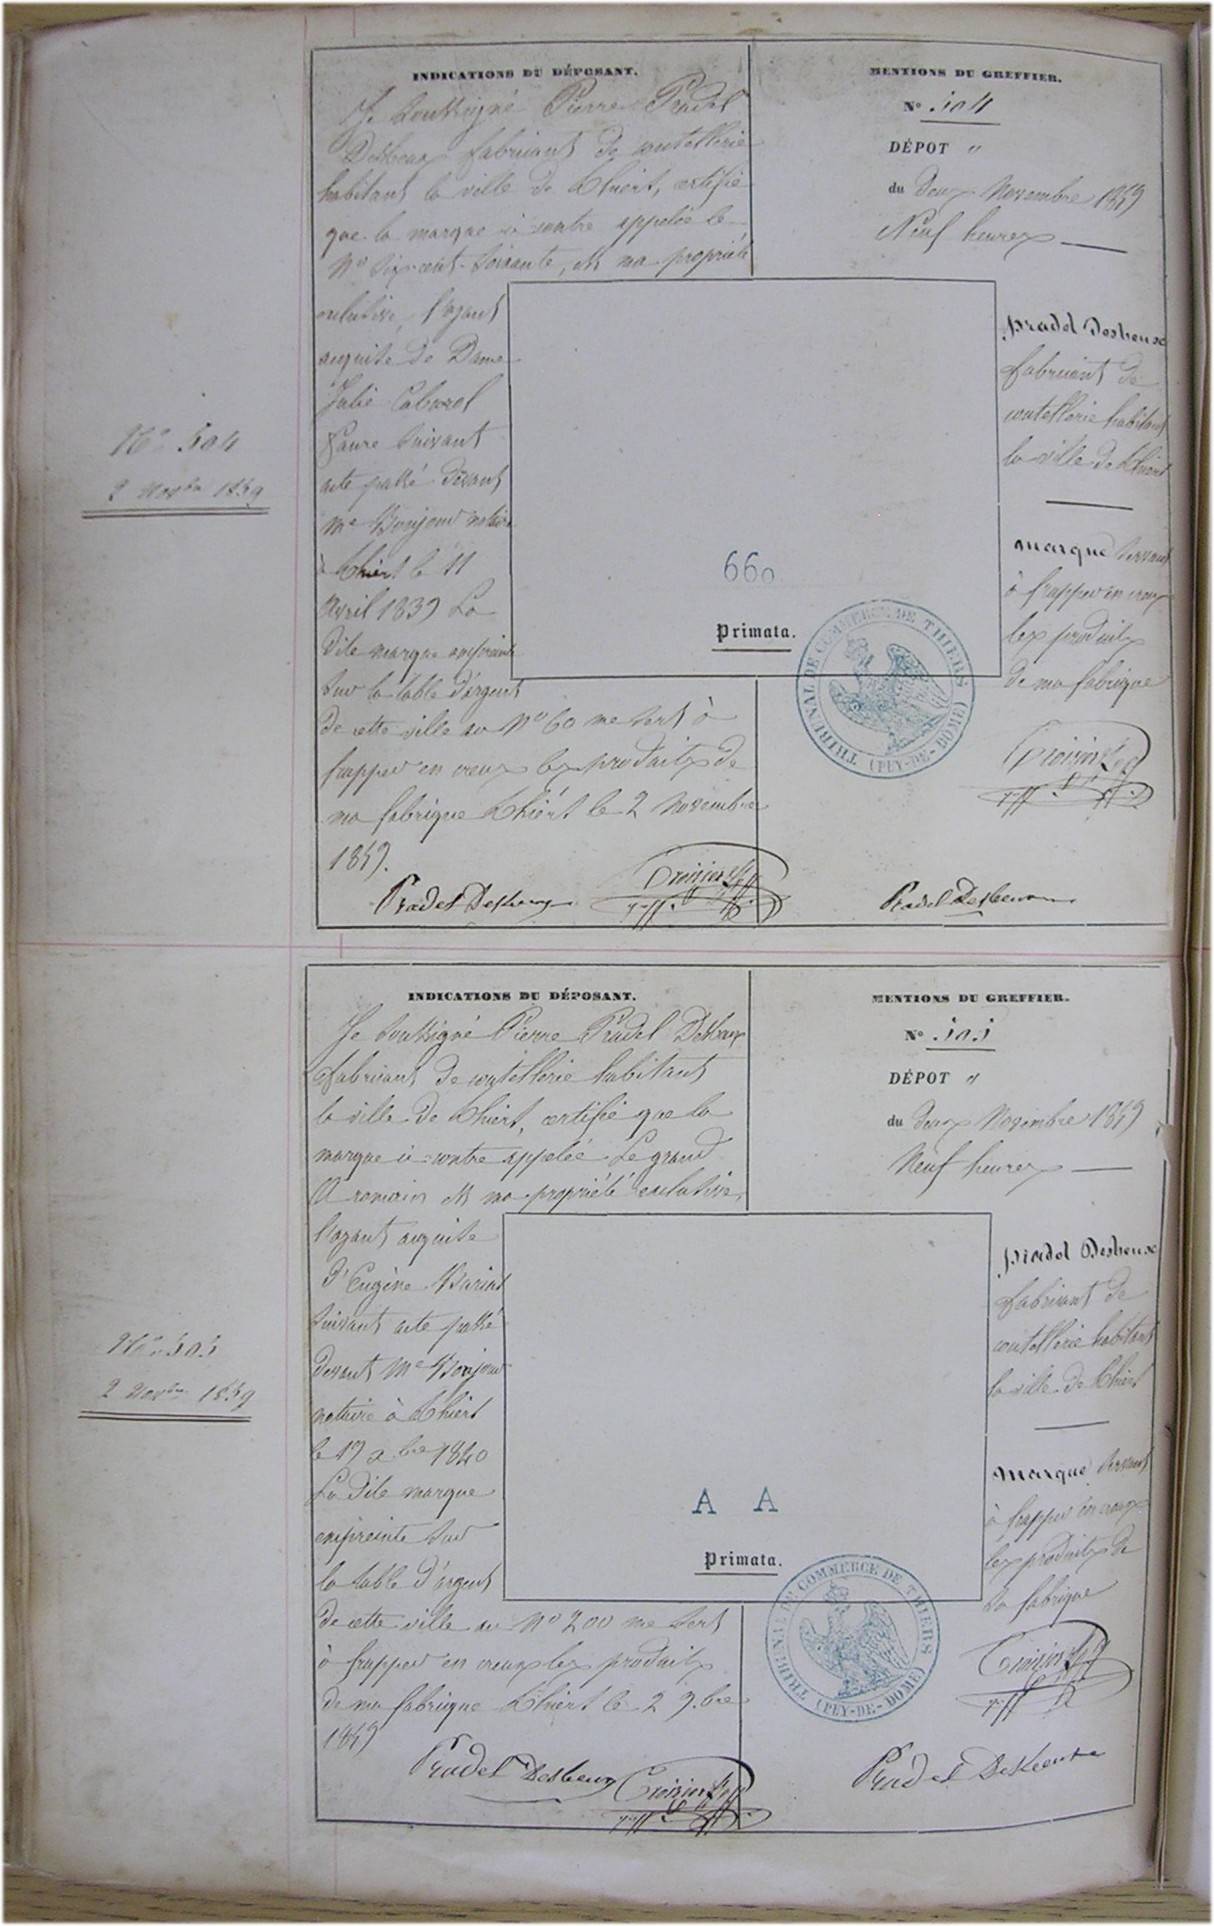 INDICATIONS DU DÉPOSANT.
Je soussigné Pierre Pradel
Desbeux fabricant de coutellerie
habitant la ville de Thiers, certifie
que la marque ci contre appelée le
N° Six-cent-soixante, est ma propriété
exclusive, l'ayant
acquise de Dame
Julie Cabarel
Faure suivant
acte passé devant
Me Bonjour notaire
à Thiers le 11
Avril 1839 La
dite marque empreinte
sur la table d'argent
de cette ville au N° 60 me sert à
frapper en creux les produits de
ma fabrique Thiers le 2 Novembre
1859.
Pradel Desbeux
Croizier Gff
MENTIONS DU GREFFIER.
N° 504
DÉPOT "
du deux Novembre 1859
Neuf heures
pradel Desbeux
fabricant de
coutellerie habitant
la ville de Thiers
marque servant
à frapper en creux
les produits
de ma fabrique
Croizier Gff
Pradel Desbeux
660
Primata.
TRIBUNAL DE COMMERCE DE THIERS
(PUY-DE-DOME)
N° 504
2 Novbre 1859
INDICATIONS DU DÉPOSANT.
Je soussigné Pierre Pradel Desbeux
fabricant de coutellerie habitant
la ville de Thiers, certifie que la
marque ci-contre appelée Le grand
A romain est ma propriété exclusive,
l'ayant acquise
d'Eugène
suivant acte passé
devant Me Bonjour
notaire à Thiers
le 17 bre 1840
La dite marque
empreinte sur
la table d'argent
de cette ville au N° 200 me sert
à frapper en creux les produits
de ma fabrique Thiers le 2 9.bre
1859
Pradel Desbeux
Croizier Gff
MENTIONS DU GREFFIER.
N° 505
DÉPOT "
du deux Novembre 1859
Neuf heures
pradel Desbeux
fabricant de
coutellerie habitant
la ville de Thiers
marque servant
à frapper en creux
les produits de
sa fabrique
Croizier Gff
Pradel Desbeux
A A
Primata.
TRIBUNAL DE COMMERCE DE THIERS
(PUY-DE-DOME)
N° 505
2 Novbre 1859